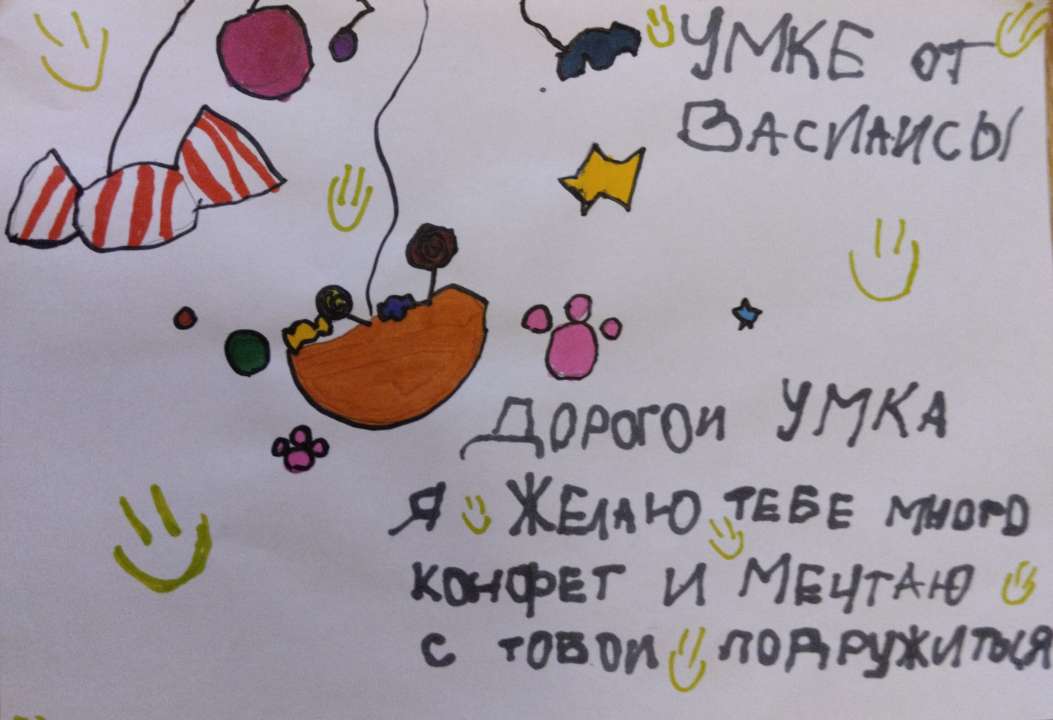 УМКЕ ОТ
ВАСИЛИСЫ
ДОРОГОИ УМКА
Я ЖЕЛАЮ ТЕБЕ МНОГО
КОНФЕТ И МЕЧТАЮ
С ТОБОИ ПОДРУЖИТЬСЯ